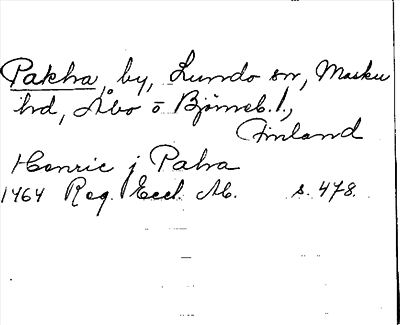 Pakha, by, Lundo sn, Masku
hd, Åbo o Björneb. l.,
Finland
Henric j Palra
1464 Reg. Eccl. Ab. s. 478.